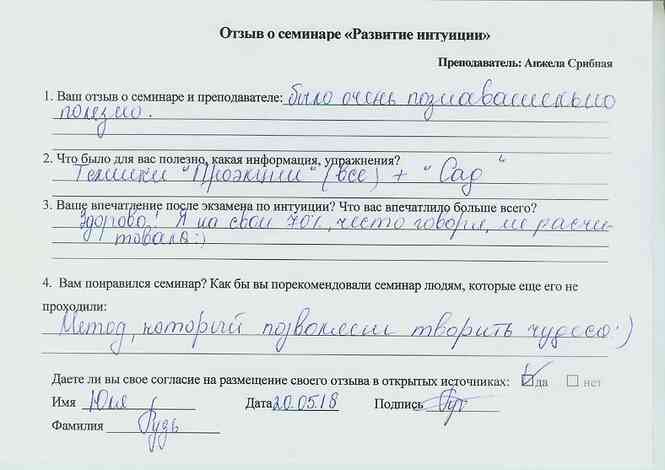 Отзыв о семинаре «Развитие интуиции»
Преподаватель: Анжела Срибная
1. Ваш отзыв о семинаре и преподавателе: было очень познавательно
полезно.
2. Что было для вас полезно, какая информация, упражнения?
Техники "Проэкции" (все) + "Сад"
3. Ваше впечатление после экзамена по интуиции? Что вас впечатлило больше всего?
Здорово! Я на свои 70%, честно говоря, не расчи-
товала:)
4. Вам понравился семинар? Как бы вы порекомендовали семинар людям, которые еще его не
проходили:
Метод, который позволяет творить чудеса:)
Даете ли вы свое согласие на размещение своего отзыва в открытых источниках: да нет
Имя Юля Дата 20.05.18 Подпись
Фамилия Гузь